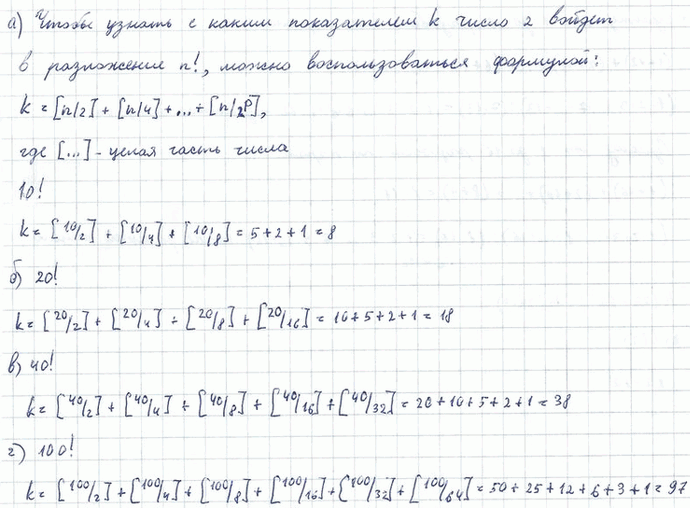 а) Чтобы узнать с каким показателем k число 2 войдет
в разложение n!, можно воспользоваться формулой:
k = [n/2] + [n/4] + ... + [n/2^p],
где [...] - целая часть числа
10!
k = [10/2] + [10/4] + [10/8] = 5 + 2 + 1 = 8
б) 20!
k = [20/2] + [20/4] + [20/8] + [20/16] = 10 + 5 + 2 + 1 = 18
в) 40!
k = [40/2] + [40/4] + [40/8] + [40/16] + [40/32] = 20 + 10 + 5 + 2 + 1 = 38
г) 100!
k = [100/2] + [100/4] + [100/8] + [100/16] + [100/32] + [100/64] = 50 + 25 + 12 + 6 + 3 + 1 = 97